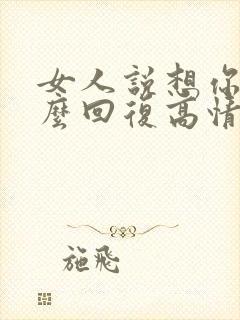 女人說想你
麼回復高情
施飛